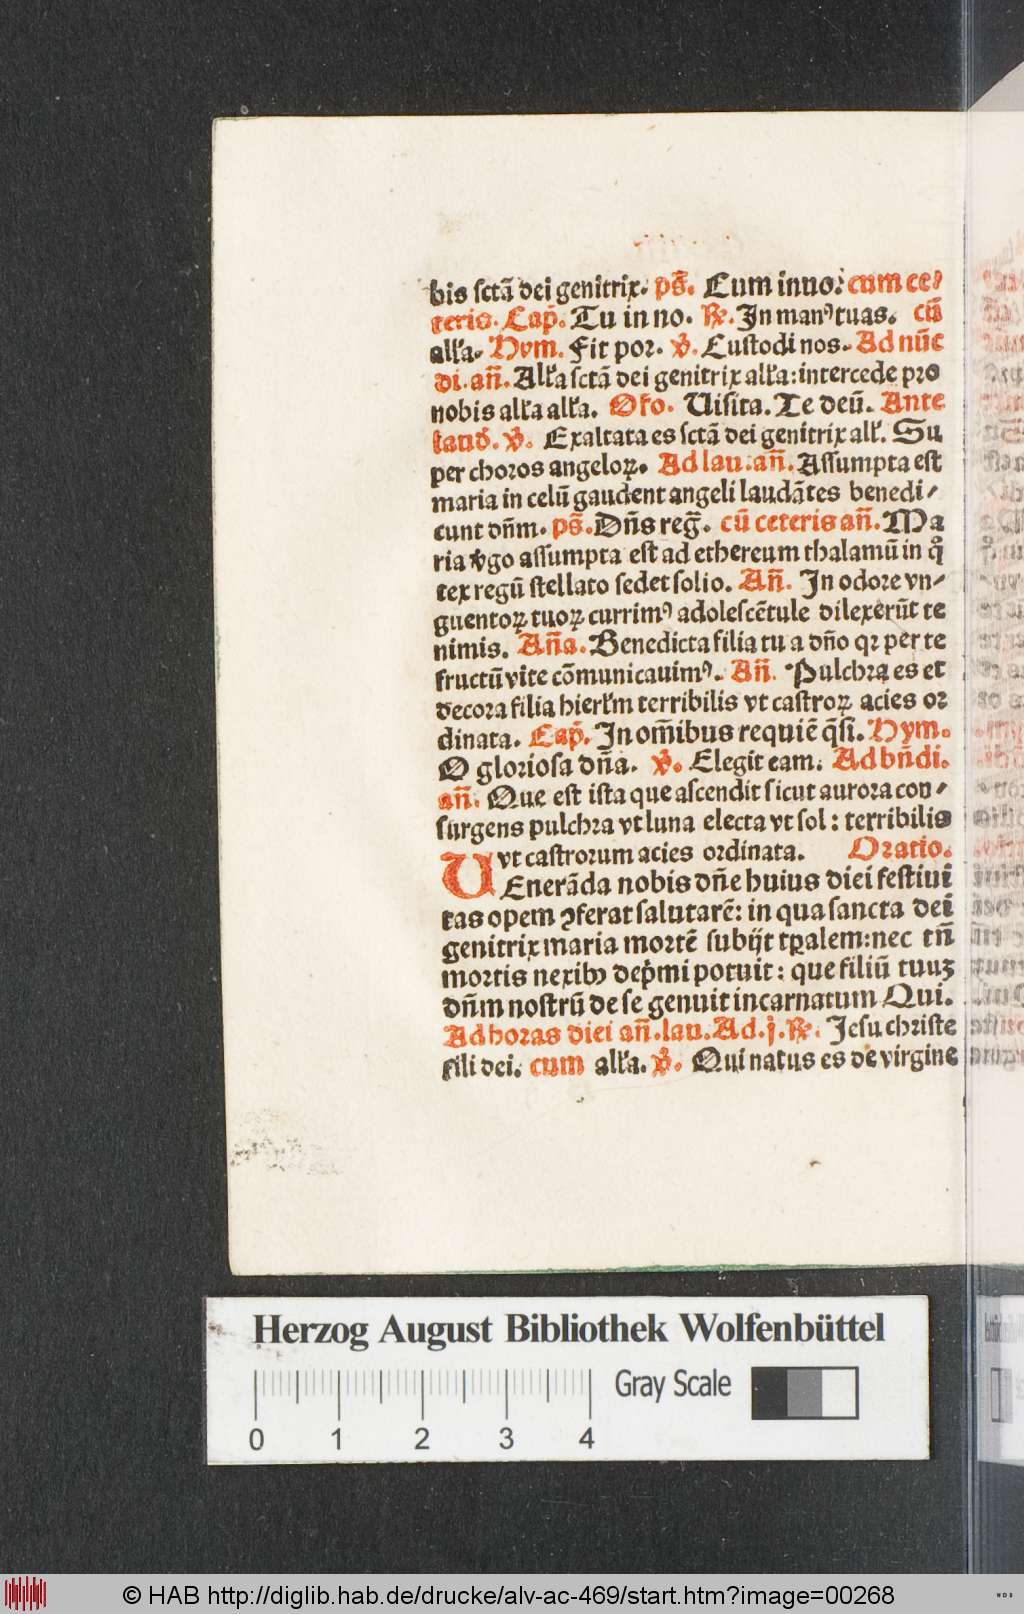 bis sctã dei genitrix. ps̃. Cum inuo: cum ce⸗
teris. Cap̃. Tu in no. ℟. In manꝰ tuas. cũ
alľa. Hym. Fit por. ℣. Custodi nos. Ad nũc
di. añ. Alľa sctã dei genitrix alľa: intercede pro
nobis alľa alľa. Oŕo. Uisita. Te deũ. Ante
laud̉. ℣. Exaltata es sctã dei genitrix alľ. Su
per choros angeloꝝ. Ad lau. añ. Assumpta est
maria in celũ gaudent angeli laudãtes benedi⸗
cunt dñm. ps̃. Dñs reg̃. cũ ceteris añ. Ma
ria v̓go assumpta est ad ethereum thalamũ in q̊
rex regũ stellato sedet solio. Añ. In odore vn⸗
guentoꝝ tuoꝝ currimꝰ adolescẽtule dilexerũt te
nimis. Aña. Benedicta filia tu a dño qꝛ per te
fructũ vite cõmunicauimꝰ. Añ. Pulchra es et
decora filia hierľm terribilis vt castroꝝ acies or
dinata. Cap̃. In om̃ibus requiẽ q̃si. Hym.
O gloriosa dña. ℣. Elegit eam. Ad bñdi.
añ. Que est ista que ascendit sicut aurora con⸗
surgens pulchra vt luna electa vt sol: terribilis
vt castrorum acies ordinata. Oratio.
UEnerãda nobis dñe huius diei festiui
tas opem ꝯferat salutarẽ: in qua sancta dei
genitrix maria mortẽ subijt tꝑalem: nec tñ
mortis nexibꝫ dep̃mi potuit: que filiũ tuuꝫ
dñm nostrũ de se genuit incarnatum Qui.
Ad horas diei añ. lau. Ad. j. ℟. Jesu christe
fili dei. cum alľa. ℣. Qui natus es de virgine
Herzog August Bibliothek Wolfenbüttel
Gray Scale
0 1 2 3 4
© HAB http://diglib.hab.de/drucke/alv-ac-469/start.htm?image=00268